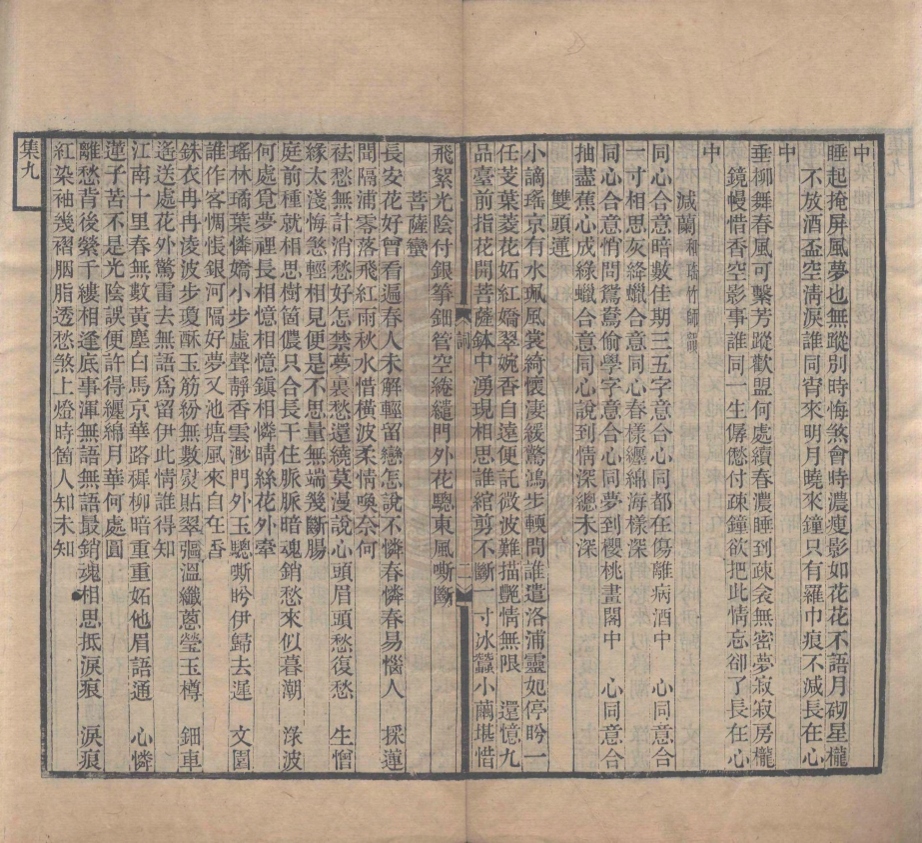 睡起掩屏風夢也無蹤別時悔煞會時濃瘦影如花花不語月砌星櫳
不放酒盃空淸淚誰同宵來明月曉來鐘只有羅巾痕不減長在心
中
垂柳舞春風可繫芳蹤歡盟何處續春濃睡到疎衾無密夢寂寂房櫳
鏡慢惜香空影事誰同一生孱愁付疎鐘欲把此情忘卻了長在心
中
減蘭
同心合意暗數佳期三五字意合心同都在傷離病酒中 心同意合
一寸相思灰絳蠟合意同心春樣纏綿海樣深
同心合意悄問鴛鴦偷學字意合心同夢到櫻桃畫閣中 心同意合
抽盡蕉心成綠蠟合意同心說到情深總未深
雙頭蓮
小謫瑤京有水珮風裳綺懷淒緩驚鴻步轉問誰遣洛浦靈妃停盼一
任芰葉菱花妬紅嬌翠婉香自遠便託微波難描艷情無限 還憶九
品臺前指花開菩薩鉢中湧現相思誰綰剪不斷一寸冰蠶小繭堪惜
飛絮光陰付銀箏鈿管空綣繾門外花驄東風嘶斷
菩薩蠻
長安花好曾看遍春人未解輕留戀怎說不憐春憐春易惱人 採蓮
間隔浦零落飛紅雨秋水惜橫波柔情喚奈何
祛愁無計消愁好怎禁夢裏愁還繞莫漫說心頭眉頭愁復愁 生憎
緣太淺悔煞輕相見便是不思量無端幾斷腸
庭前種就相思樹箇儂只合長干住脈脈暗魂銷愁來似暮潮 淥波
何處覓夢裡長相憶相憶鎭相憐晴絲花外牽
瑤林璚葉憐嬌小步虛聲靜香雲渺門外玉驄嘶盻伊歸去遲 文園
誰作客惆悵銀河隔好夢又池塘風來自在香
銖衣冉冉淩波步瓊酥玉筋紛無數熨貼翠彊溫纖蔥瑩玉樽 鈿車
遙送處花外驚雷去無語爲留伊此情誰得知
江南十里春無數黃塵白馬京華路穉柳暗重重妬他眉語通 心憐
蓮子苦不是光陰誤便許得纏綿月華何處圓
離愁背後縈千縷相逢底事渾無語無語最銷魂相思抵淚痕 淚痕
紅染袖幾褶胭脂透愁煞上燈時箇人知未知
詞
二
集九